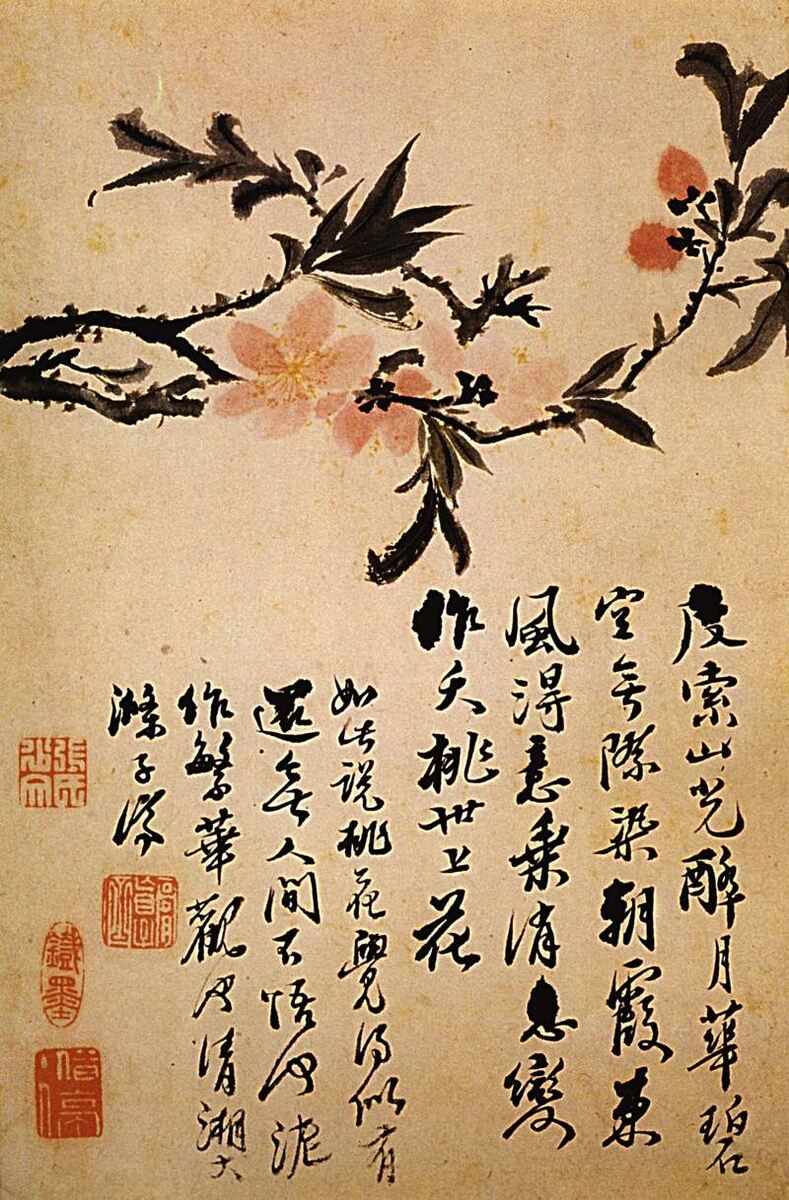 度索山光醉月華碧
空無際染朝霞東
風得意乘消息變
作夭桃世上花
如此說桃花覺得似有
還無人間不悟何泥
作繁華觀何清湘大
滌子濟